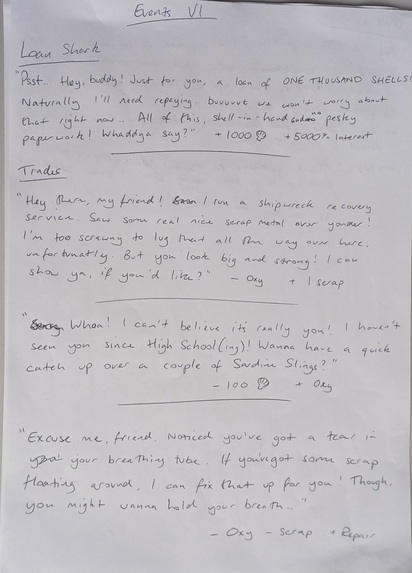 Events V1
Loan Shark
"Psst.. Hey, buddy! Just for you, a loan of ONE THOUSAND SHELLS!
Naturally I'll need repaying. buuuut we won't worry about
that right now.. All of this, shell-in-hand pesky
paperwork! Whaddya say?" +1000 +5000% Interest
Trades
"Hey there, my friend! I run a shipwreck recovery
service. Saw some real nice scrap metal over yonder!
I'm too scrawny to lug that all the way over here,
unfortunatly. But you look big and strong! I can
show ya, if you'd like?" - Oxy + 1 scrap
"Whoa! I can't believe it's really you! I haven't
seen you since High School(ing)! Wanna have a quick
catch up over a couple of Sardine Slings?"
- 100 + Oxy
"Excuse me, friend. Noticed you've got a tear in
your breathing tube. If you've got some scrap
floating around, I can fix that up for you! Though,
you might wanna hold your breath.."
- Oxy - Scrap + Repair